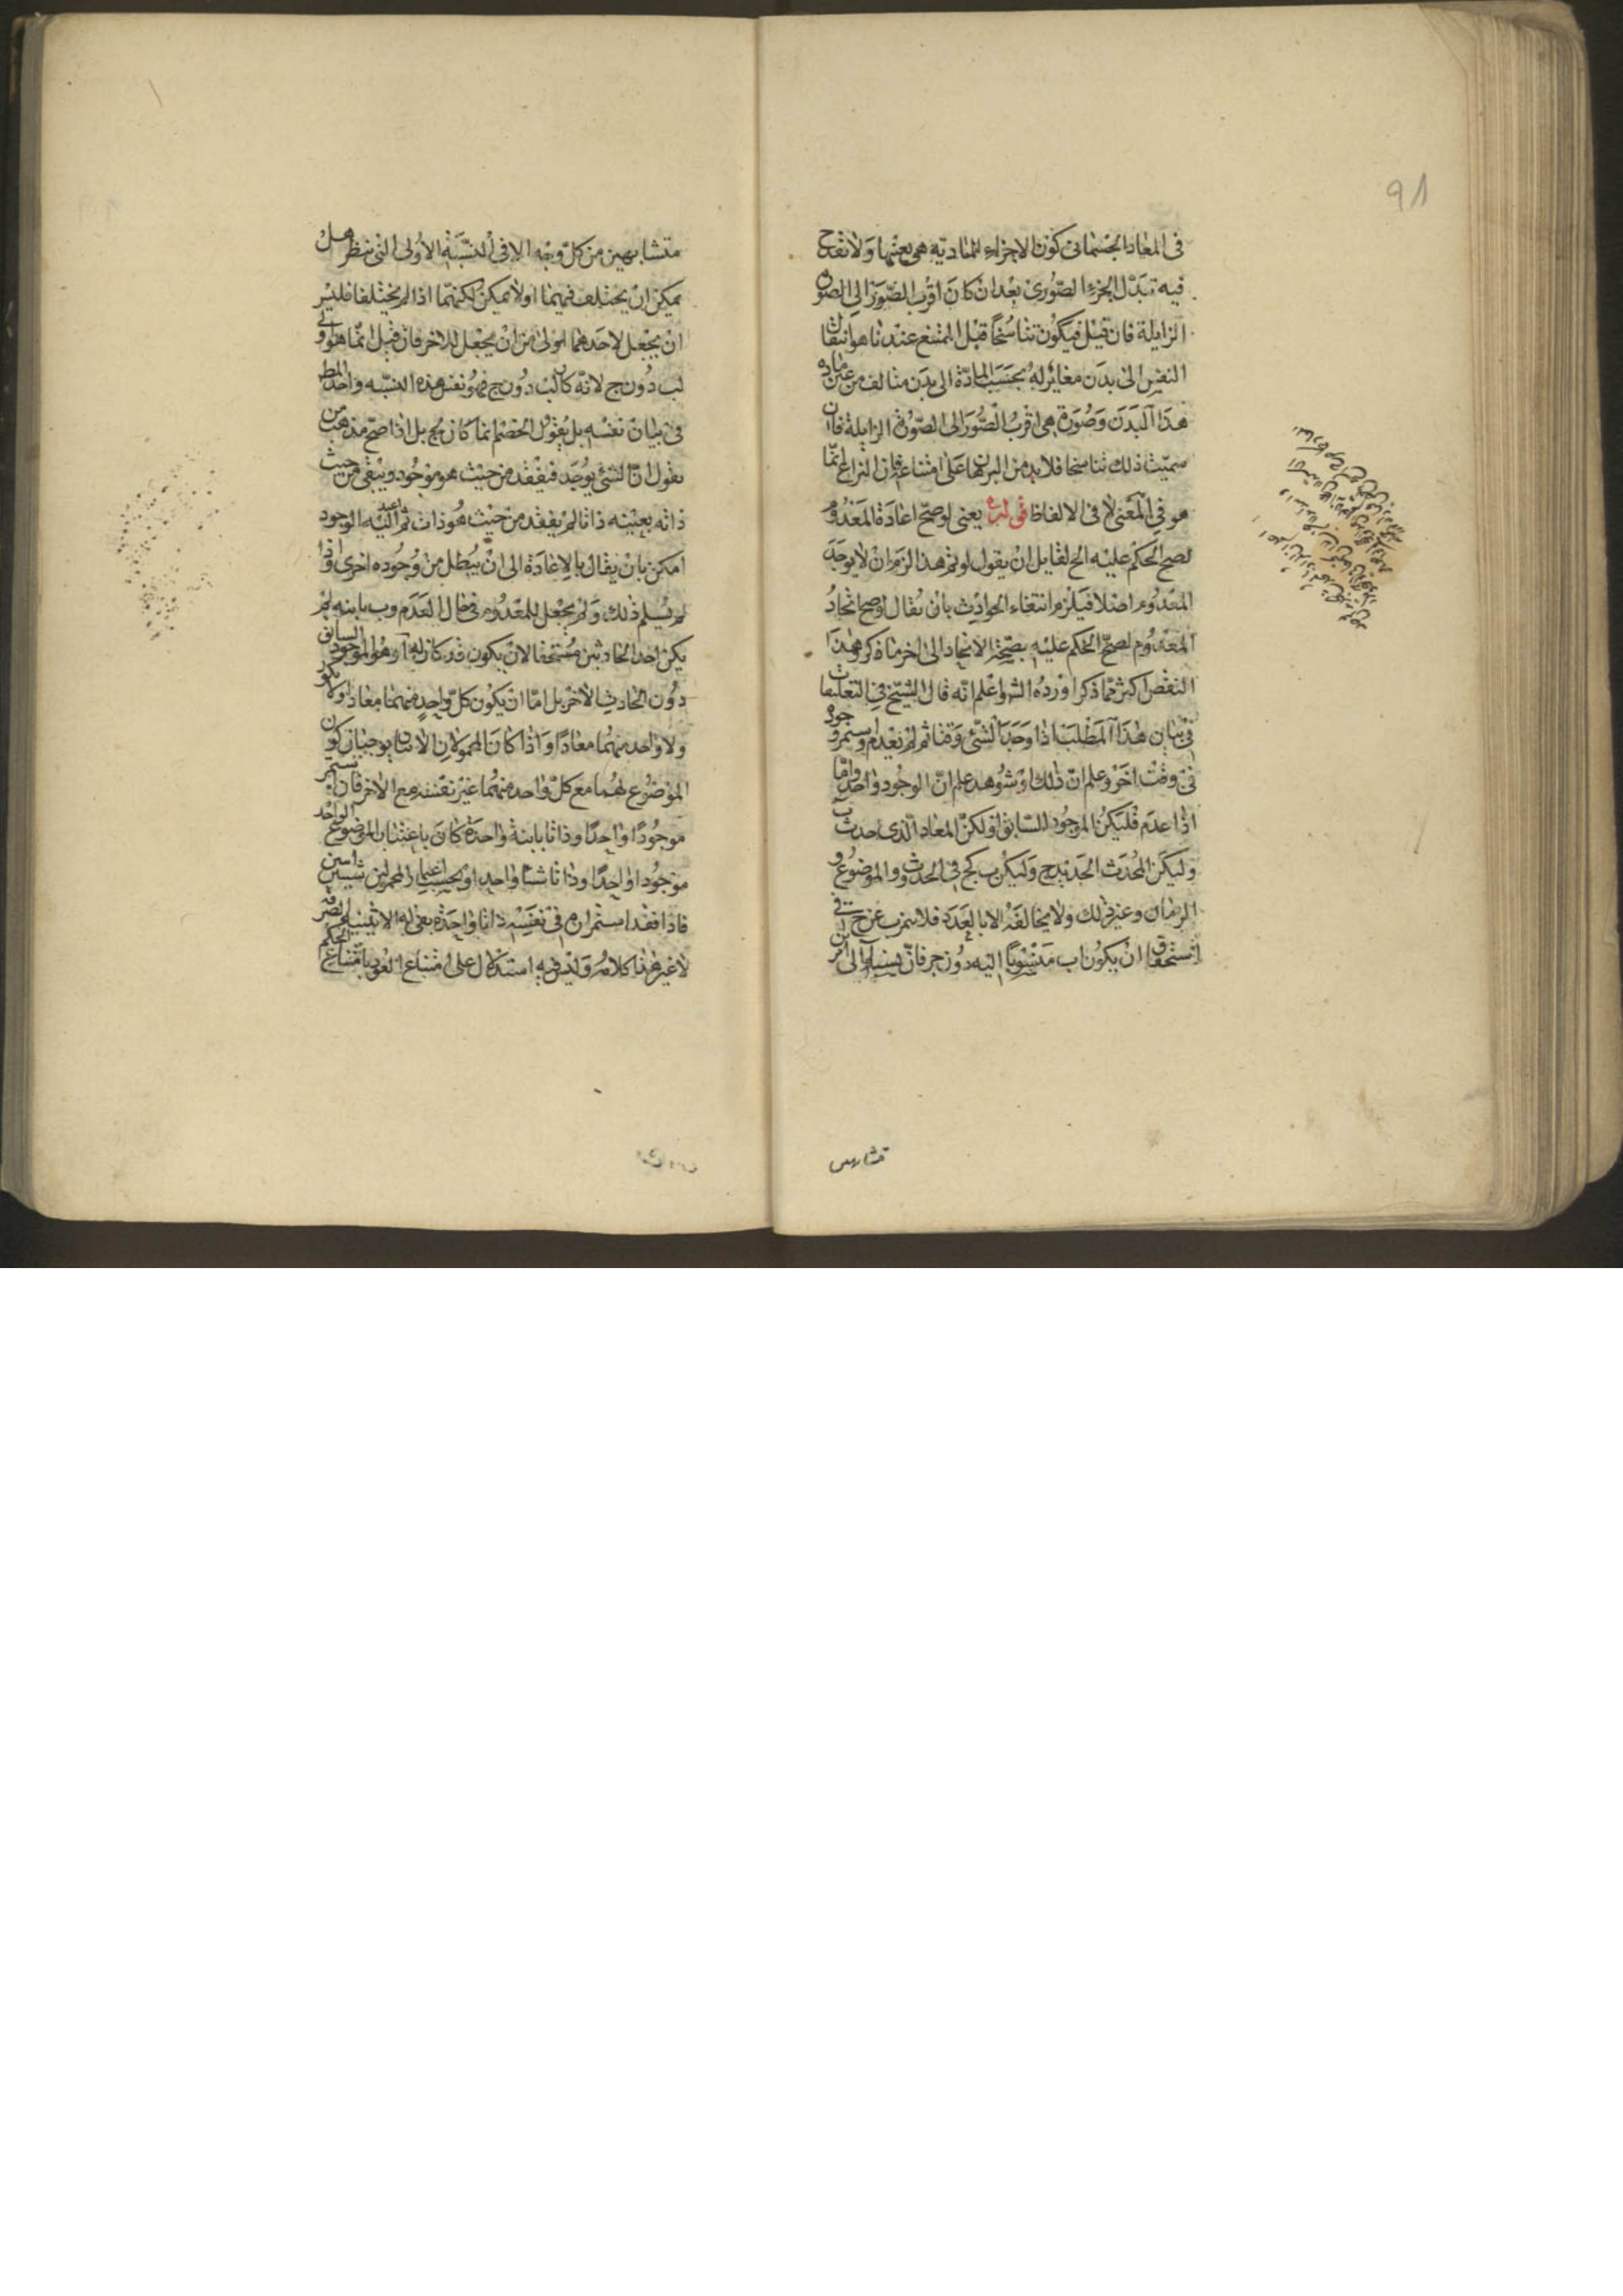 في المعاد الجسماني كون الاجزاء المادية هي بعينها ولا نقدح
فيه تبدل الجزء الصوري بعد ان كان اقرب الصور الى الصورة
الزايلة فان قيل فيكون تناسخا قيل الممتنع عندنا هو انتقال
النفس الى بدن مغاير له بحسب المادة الى بدن متالف من عين مادة
هذا البدن وصورة هي اقرب الصور الى الصورة الزايلة فان
سميت ذلك تناسخا فلا بد من البرهان على امتناعه فان النزاع انما
هو في المعنى لا في الالفاظ يعني لو صح اعادة المعدوم
لصح الحكم عليه الخ لقايل ان يقول لو تم هذا لزم ان لا يوجد
المعدوم اصلا فيلزم انتفاء الحوادث بان يقال لو صح اتحاد
المعدوم لصح الحكم عليه بصحة الاتحاد الى اخر ما ذكر وهذا
النقض اكثر مما ذكر اورده الش واعلم انه قال الشيخ في التعليقات
في بيان هذا المطلب اذا وجد الشئ وقتا ثم لم يعدم واستمر وجوده
في وقت اخر وعلم ان ذلك او شوهد علم ان الوجود واحد واما
اذا عدم فليكن الموجود السابق ا وليكن المعاد الذي حدث ب
وليكن المحدث الجديد ج وليكن ب كج في الحدوث والموضوع و
الزمان وغير ذلك ولا يخالفه الا بالعدد فلا يتميز ب عن ج في
استحقاق ان يكون ا ب منسوبا اليه دون ج فان نسبة ا الى امرين
متشابهين
متشابهين من كل وجه الا في النسبة الاولى التي ننظر هل
يمكن ان يختلف فيهما او لا يمكن لكنهما اذا لم يختلفا فليس
ان يجعل لاحدهما اولى من ان يجعل للاخر فان قيل انما هو اولى
لب دون ج لانه كان لب دون ج فهو نفس هذه النسبه واخذ المط
في بيان نفسه بل يقول الخصم انما كان لج بل اذا صح مذهب من
يقول ان الشئ يوجد فيفقد من حيث هو موجود ويبقى من حيث
ذاته بعينه ذاتا لم يفقد من حيث هو ذات ثم اعيد اليه الوجود
امكن بان يقال بالاعادة الى ان يبطل من وجوده اخرى واذا
لم يسلم ذلك ولم يجعل للمعدوم في حال العدم ذاتا ثابتة لم
يكن احد الحادثين مستحقا لان يكون قد كان له ا وهو الموجود السابق
دون الحادث الاخر بل اما ان يكون كل واحد منهما معادا او لا يكون
ولا واحد منهما معادا واذا كان المحمولان الاثنان يوجبان كون
الموضوع لهما مع كل واحد منهما غير نفسه مع الاخر فان استمر
موجودا واحدا وذاتا ثابتة واحدة كان باعتبار الموضوع الواحد
موجودا واحدا وذاتا شيئا واحدا وبحسب اعتبار المحمولين شيئين اثنين
فاذا فقد استمراره في نفسه ذاتا واحدة بقي له الاثنينية الصرفة
لا غير هذا كلامه وليس فيه استدلال على امتناع العود بامتناع الحكم